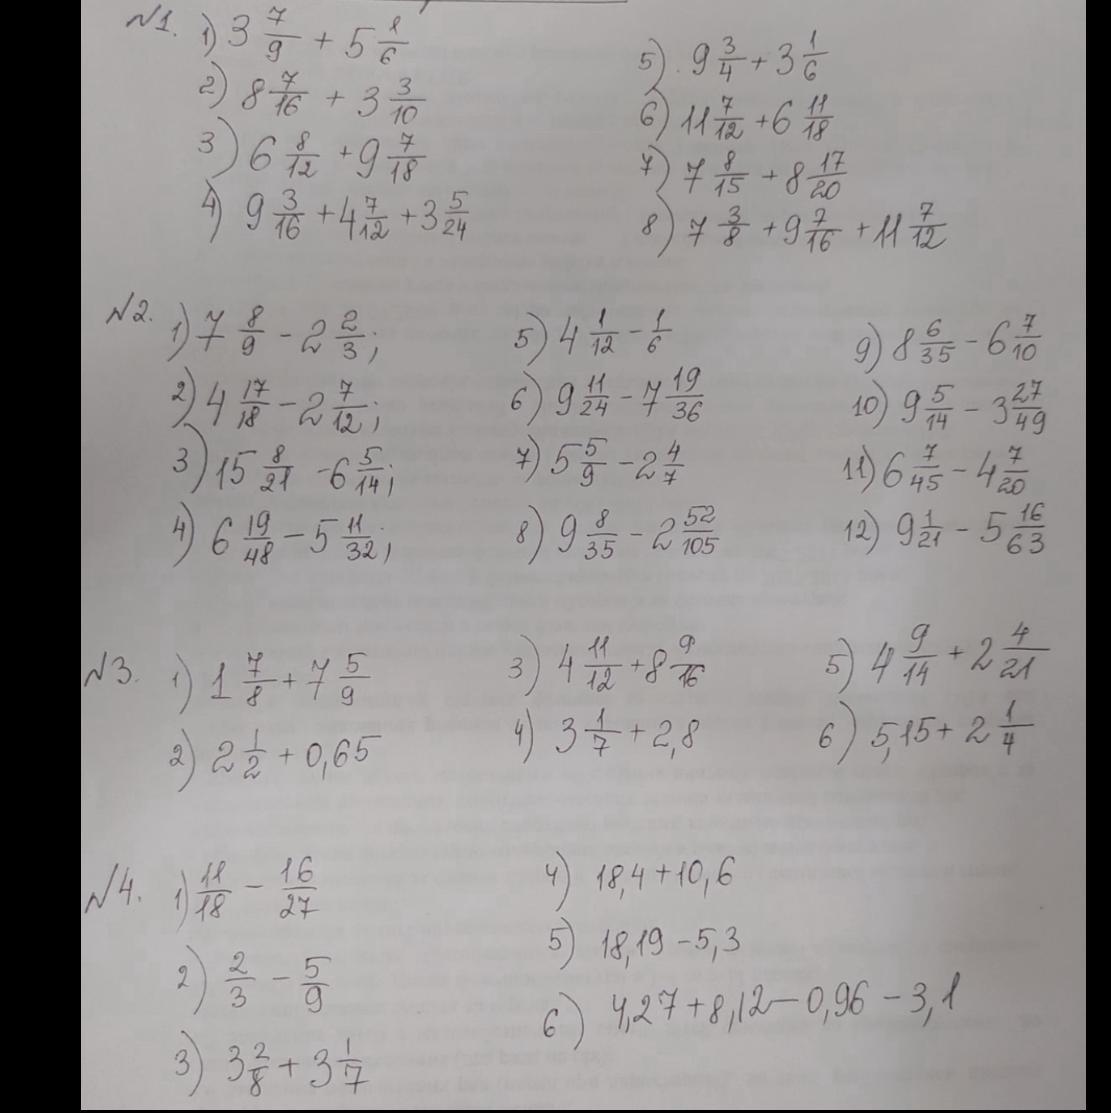 №1. 1) 3 7/9 + 5 1/6
2) 8 7/16 + 3 3/10
3) 6 8/12 + 9 7/18
4) 9 3/16 + 4 7/12 + 3 5/24
5) 9 3/4 + 3 1/6
6) 11 7/12 + 6 11/18
7) 7 8/15 + 8 17/20
8) 7 3/8 + 9 7/16 + 11 7/12
№2. 1) 7 8/9 - 2 2/3;
2) 4 17/18 - 2 7/12;
3) 15 8/21 - 6 5/14;
4) 6 19/48 - 5 11/32;
5) 4 1/12 - 1/6
6) 9 11/24 - 7 19/36
7) 5 5/9 - 2 4/7
8) 9 8/35 - 2 52/105
9) 8 6/35 - 6 7/10
10) 9 5/14 - 3 27/49
11) 6 7/45 - 4 7/20
12) 9 1/21 - 5 16/63
№3. 1) 1 7/8 + 7 5/9
2) 2 1/2 + 0,65
3) 4 11/12 + 8 9/16
4) 3 1/7 + 2,8
5) 4 9/14 + 2 4/21
6) 5,15 + 2 1/4
№4. 1) 11/18 - 16/27
2) 2/3 - 5/9
3) 3 2/8 + 3 1/7
4) 18,4 + 10,6
5) 18,19 - 5,3
6) 4,27 + 8,12 - 0,96 - 3,1